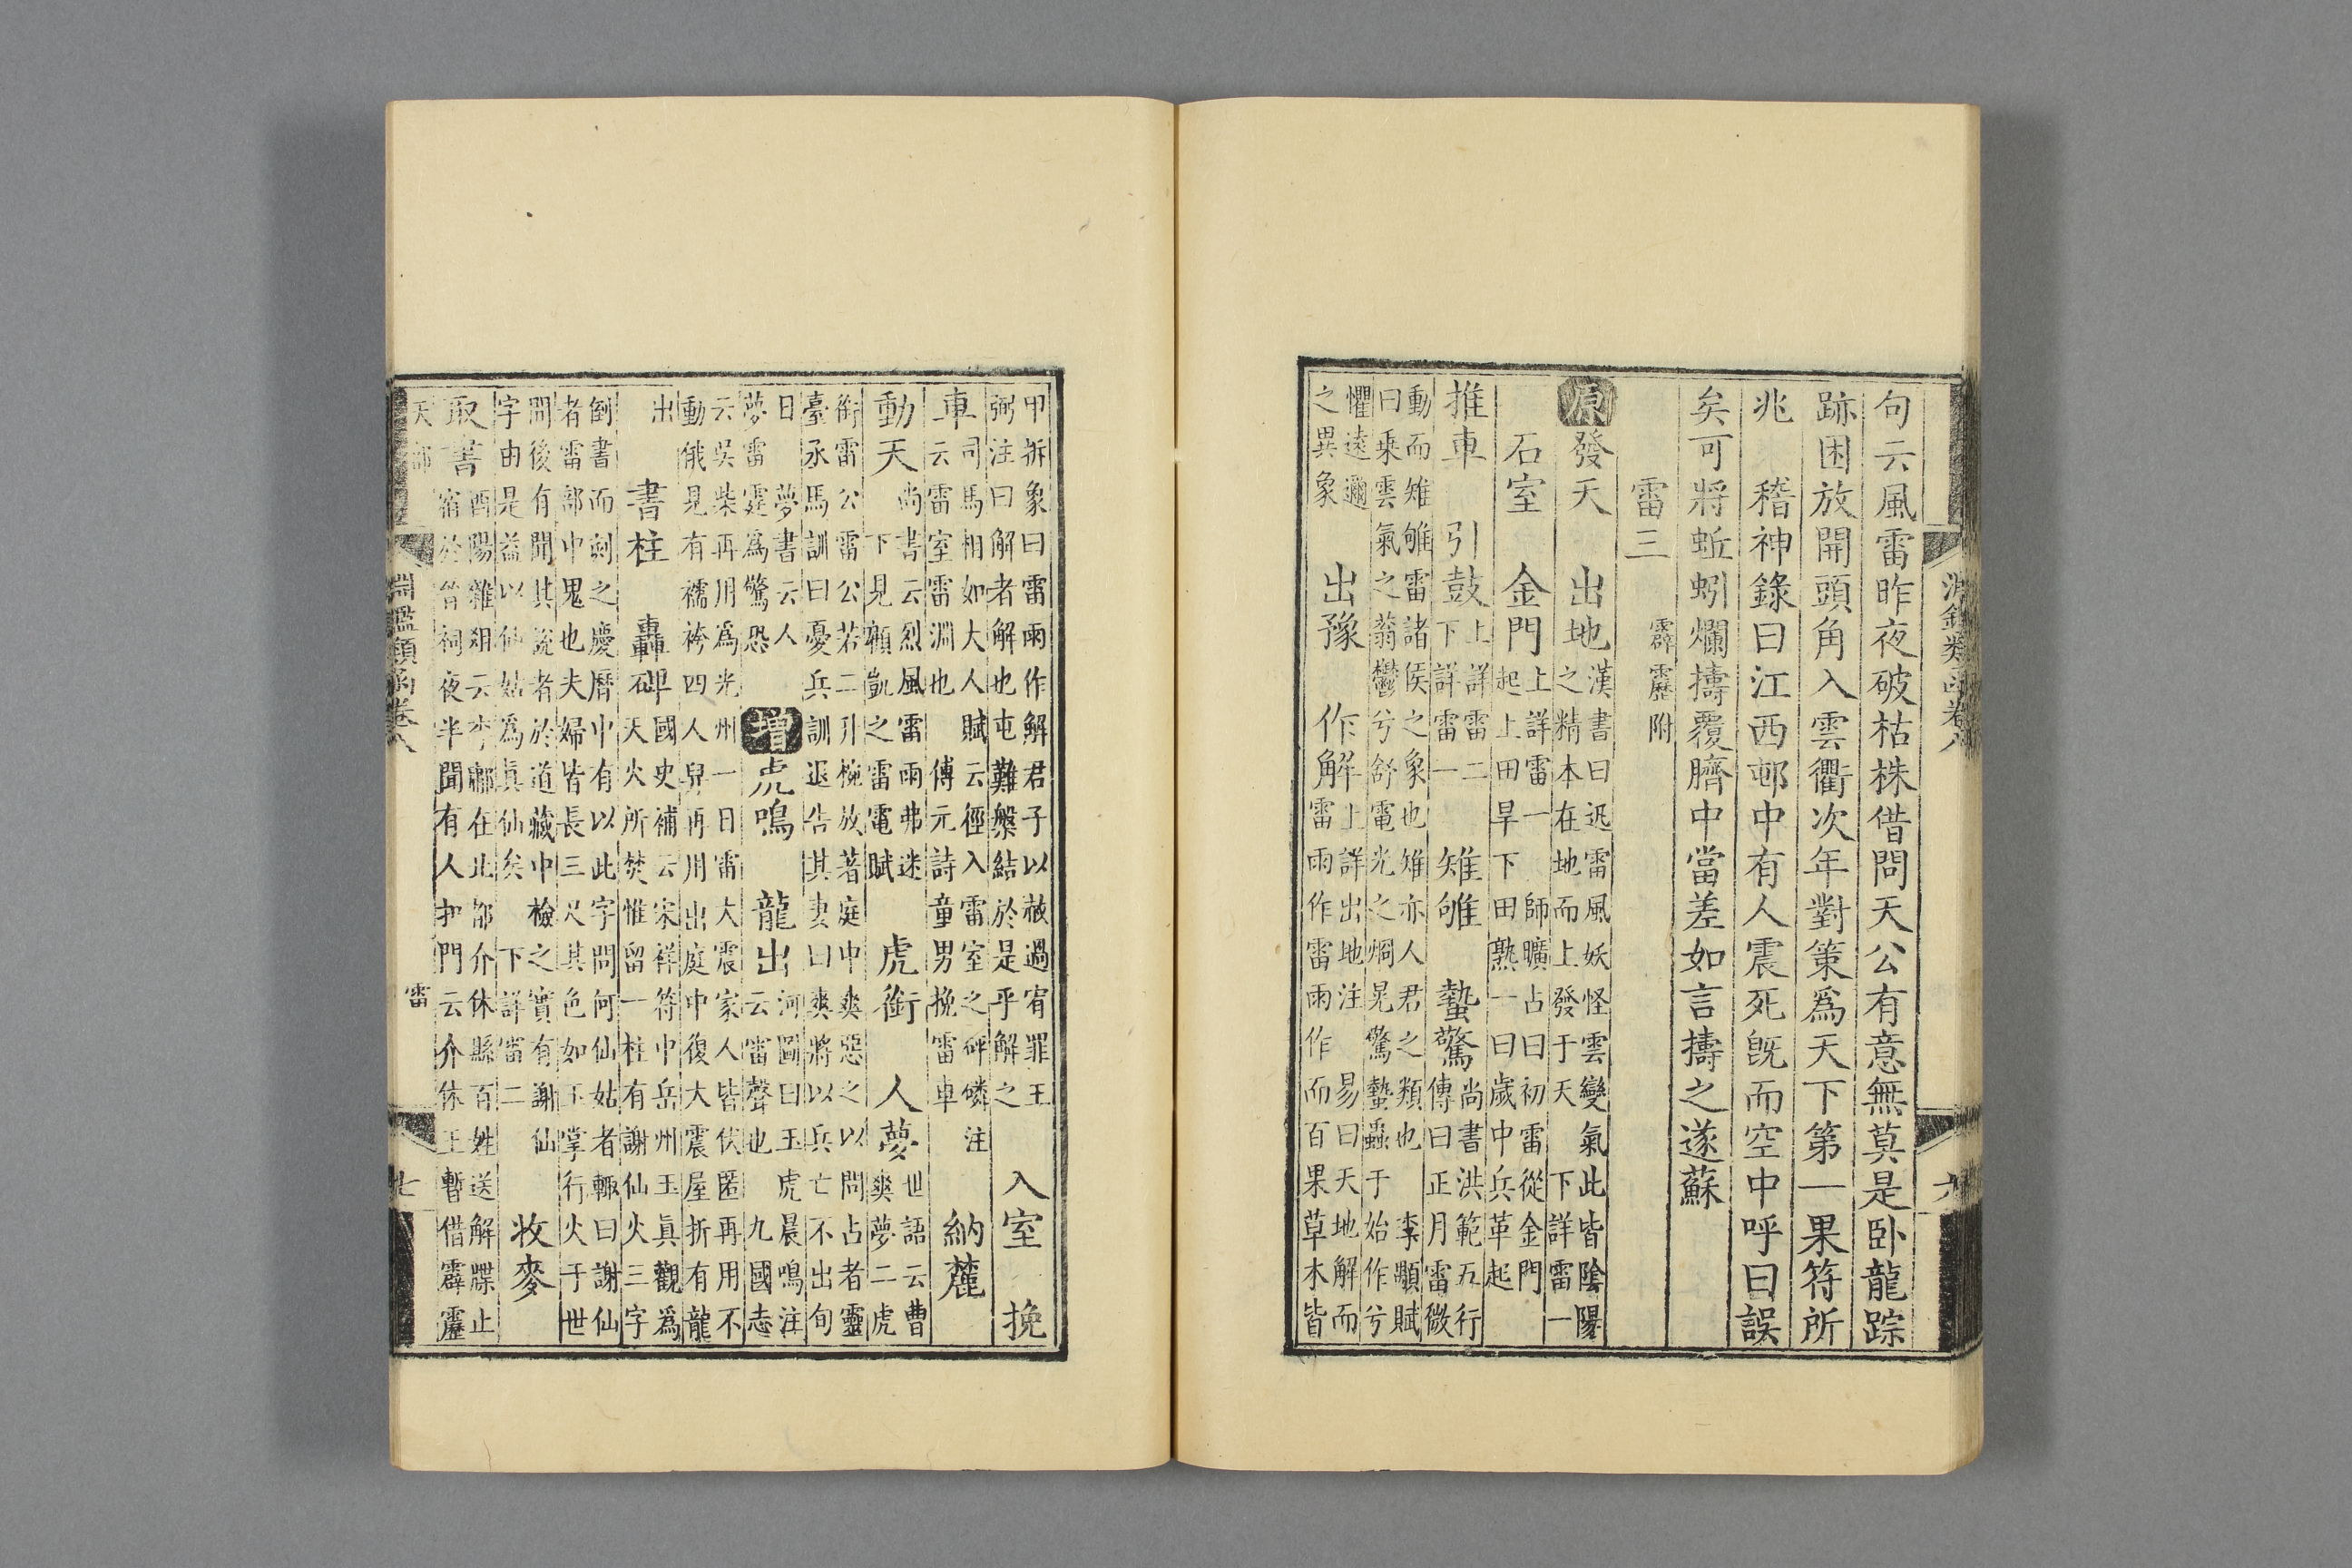 淵鑑類函卷八
句云風雷昨夜破枯株借問天公有意無莫是卧龍踪
跡困放開頭角入雲衢次年對策爲天下第一果符所
兆 稽神錄曰江西邨中有人震死旣而空中呼曰誤
矣可將蚯蚓爛擣覆臍中當差如言擣之遂蘇
雷三 霹靂附
原 發天 出地
漢書曰迅雷風妖怪雲變氣此皆陰陽
之精本在地而上發于天 下詳雷一
石室 金門
上詳雷一 師曠占曰初雷從金門
起上田旱下田熟一曰歲中兵革起
推車 引鼓
上詳雷二
下詳雷一
雉雊 蟄驚
尚書洪範五行
傳曰正月雷微
動而雉雊雷諸侯之象也雉亦人君之類也 李顒賦
曰乘雲氣之蓊鬱兮舒電光之烱晃驚蟄蟲于始作兮
懼遠邇
之異象
出豫 作解
上詳出地注 易曰天地解而
雷雨作雷雨作而百果草木皆
甲拆象曰雷雨作解君子以赦過宥罪王
弼注曰解者解也屯難盤結於是乎解之
入室 挽
車
司馬相如大人賦云徑入雷室之砰磷注
云雷室雷淵也 傅元詩童男挽雷車
納麓
動天
尚書云烈風雷雨弗迷
下見顧凱之雷電賦
虎銜 人夢
世語云曹
爽夢二虎
銜雷公雷公若二升椀放著庭中爽惡之以問占者靈
臺丞馬訓曰憂兵訓退告其妻曰爽將以兵亡不出旬
日 夢書云人
夢雷霆爲驚恐
增 虎鳴 龍出
河圖曰玉虎晨鳴注
云雷聲也 九國志
云吳柴再用爲光州一日雷大震家人皆伏匿再用不
動俄見有襦袴四人舁再用出庭中復大震屋折有龍
出
書柱 轟碑
國史補云宋祥符中岳州玉眞觀爲
天火所焚惟留一柱有謝仙火三字
倒書而刻之慶曆中有以此字問何仙姑者輒曰謝仙
者雷部中鬼也夫婦皆長三尺其色如玉掌行火于世
間後有聞其說者於道藏中檢之實有謝仙
字由是益以仙姑爲眞仙矣 下詳雷二
牧麥
取書
酉陽雜俎云李鄘在北都介休縣百姓送解牒止
宿於晉祠夜半聞有人扣門云介休王暫借霹靂
天部 雷
淵鑑類函卷八 七